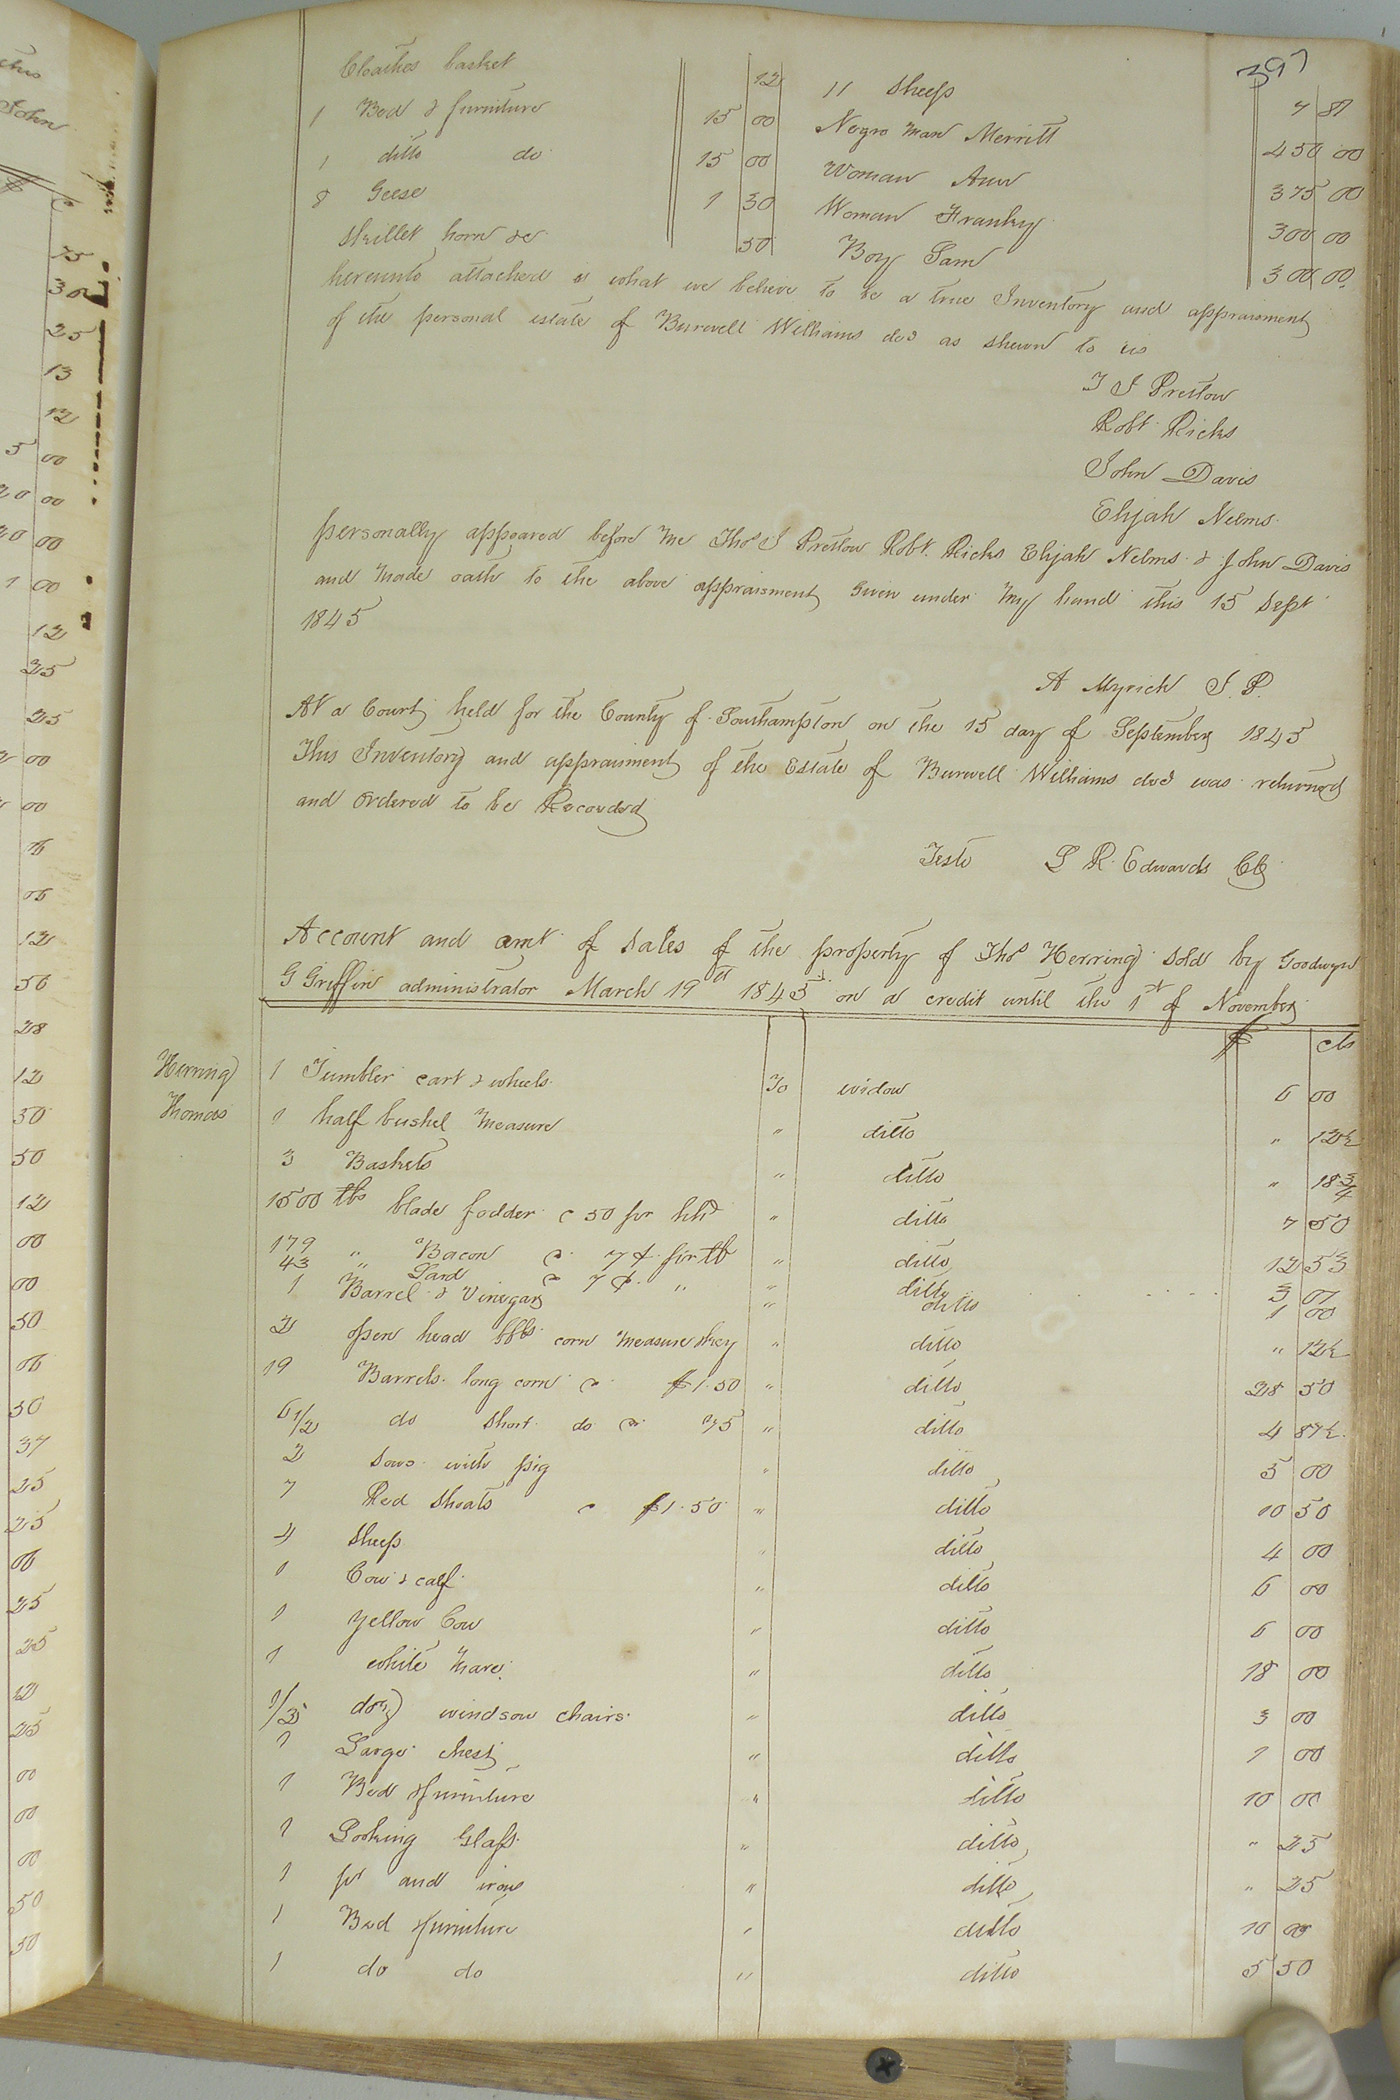 397
Cloathes basket 12 11 Sheep 7 87
1 Bed & furniture 15 00 Negro man Merritt 450 00
1 ditto do 15 00 Woman Ann 375 00
8 Geese 1 30 Woman Franky 300 00
Skillet horn &c 50 Boy Sam 300 00
hereunto attached is what we believe to be a true Inventory and appraisment
of the personal estate of Burwell Williams decd as shewn to us
T J Pretlow
Robt Ricks
John Davis
Elijah Nelms
personally appeared before me Thos J Pretlow Robt. Ricks Elijah Nelms & John Davis
and made oath to the above appraisment Given under my hand this 15 Sept
1845
A Myrick J. P.
At a Court held for the County of Southampton on the 15 day of September 1845
This Inventory and appraisment of the Estate of Burwell Williams decd was returned
and ordered to be Recorded
Teste L R Edwards Clk
Account and amt of Sales of the property of Thos Herring sold by Goodwyn
G Griffin administrator March 19th 1845 on a credit until the 1st of November
$ cts
Herring
Thomas
1 Tumbler cart & wheels To widow 6 00
1 half bushel measure " ditto " 12½
3 Baskets " ditto " 18¾
1500 lbs blade fodder @ 50 pr hhd " ditto 7 50
179 " Bacon @ 7 ¢ per lb " ditto 12 53
43 " Lard @ 7 ¢ " " ditto 3 01
1 Barrel & Vinegar " ditto 1 00
2 open head bbls corn measure & key " ditto " 12½
19 Barrels long corn @ $1.50 " ditto 28 50
6 1/2 do short do @ 75 " ditto 4 87½
2 Sows with pig " ditto 5 00
7 Red Shoats @ $1.50 " ditto 10 50
4 Sheep " ditto 4 00
1 Cow & calf " ditto 6 00
1 yellow Cow " ditto 6 00
1 white mare " ditto 18 00
1/2 doz windsow chairs " ditto 3 00
1 Large chest " ditto 1 00
1 Bed & furniture " ditto 10 00
1 Looking Glass " ditto " 25
1 pr and irons " ditto " 25
1 Bed & furniture " ditto 10 00
1 do do " ditto 5 50